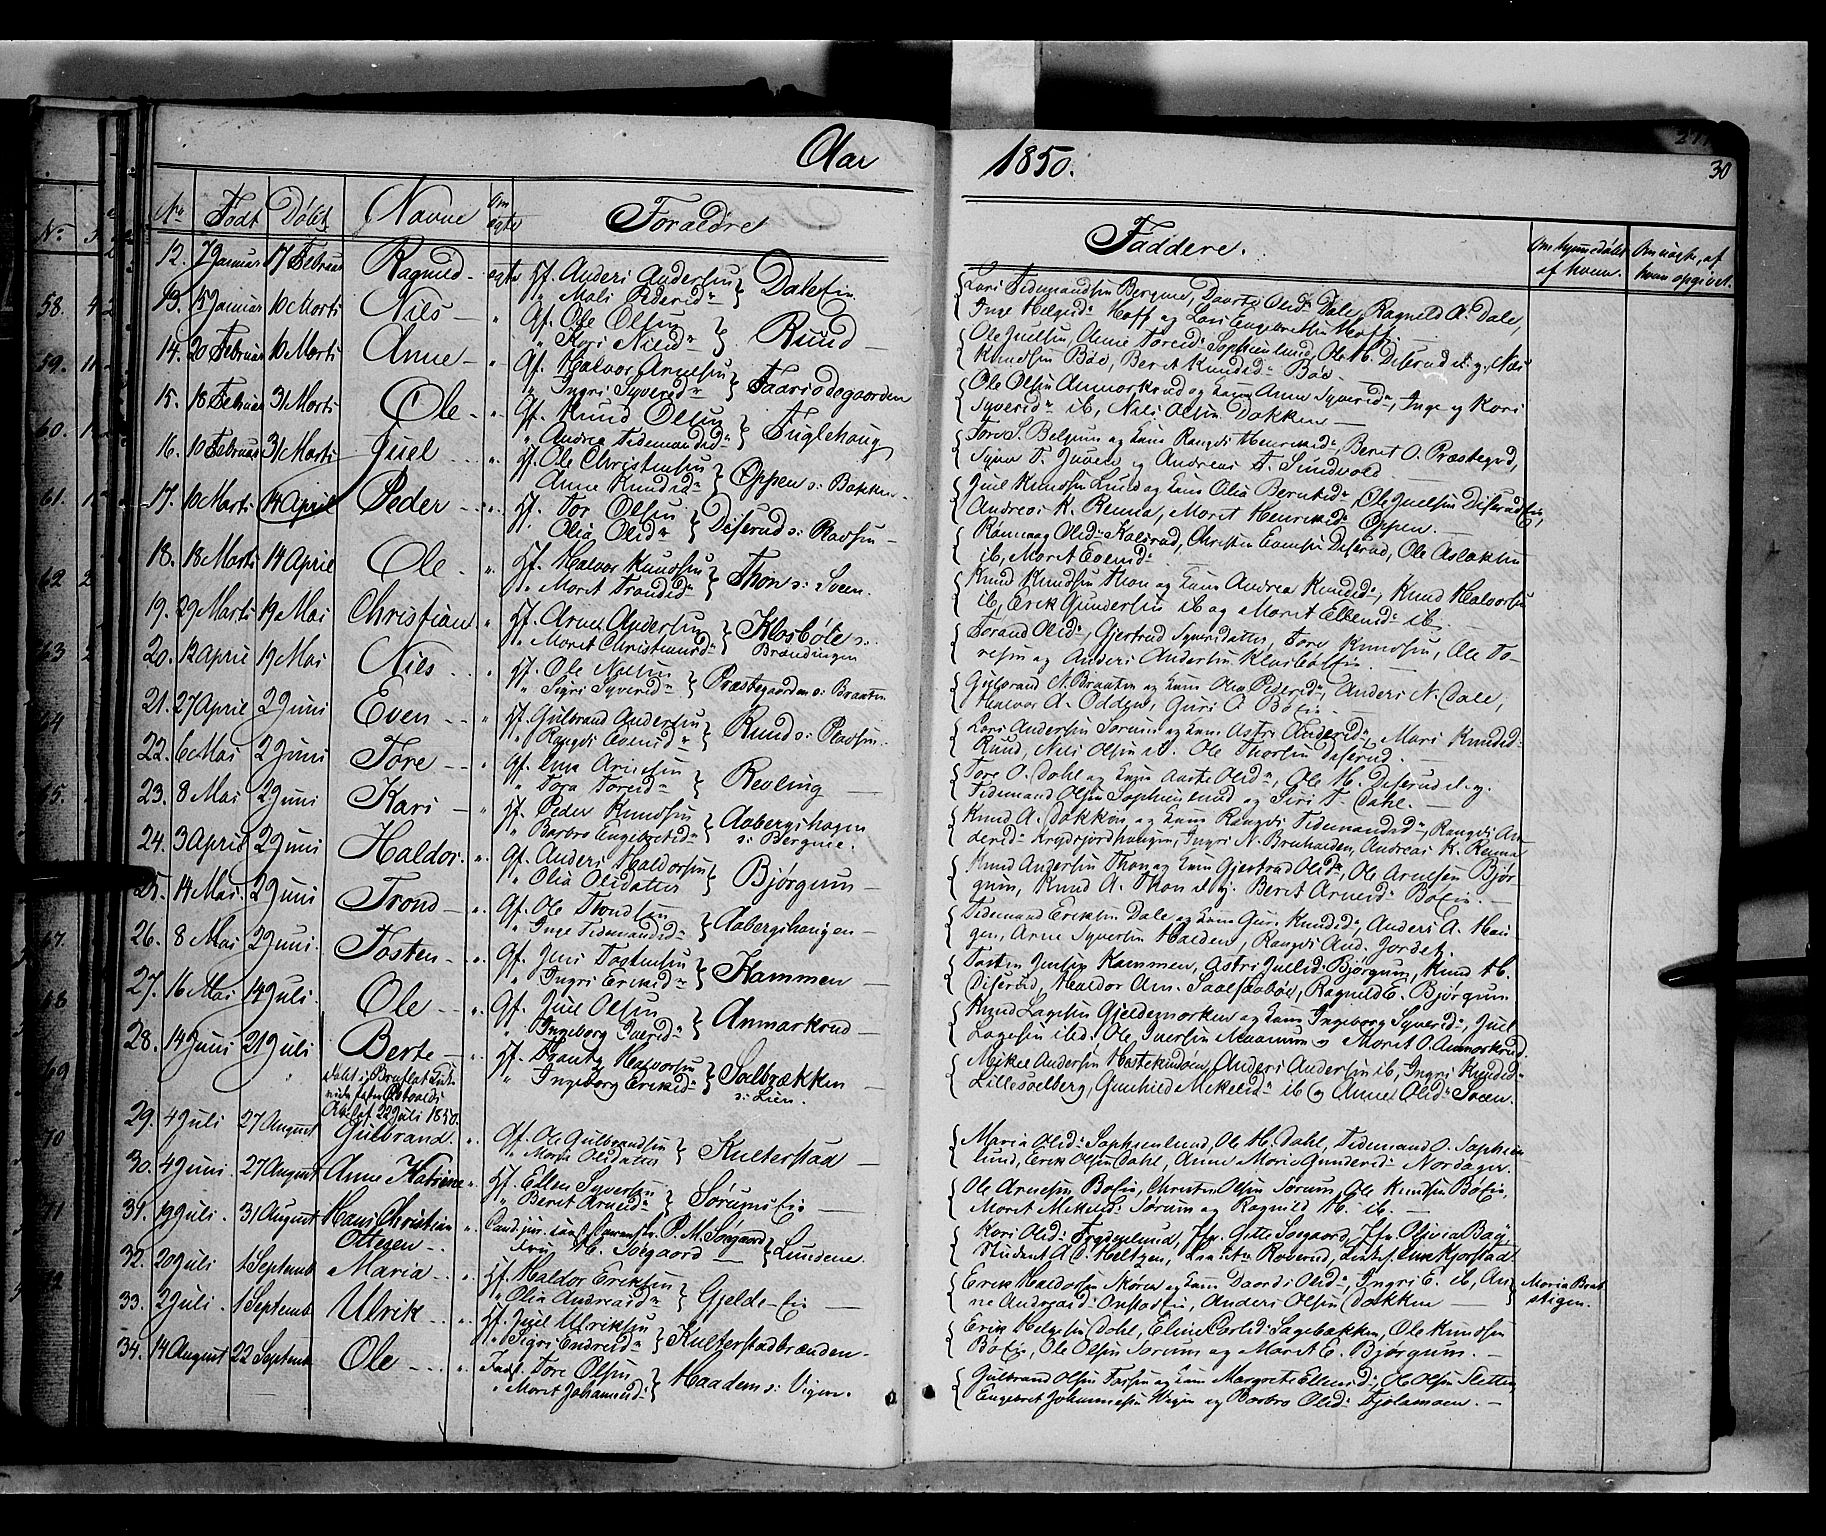 Aar 1850.
30
No Født Døbt Navne Om ægte Forældre
Faddere. Om hjemmedøbt af hvem. Om nogle, af hvem opgivet.
12. 7 Januar 17 Februar Ragnild - egte Gf. Anders Andersen
" Mali Pedersd: Dale Eie
Lars Tidemandsen Bergene, Daarte Olsd: Dale, Ragnild A. Dale,
Inge Helgesd: Hoff og Lars Engebretsen Hoff.
13. 15 Januar 10 Marts Nils - " Gf. Ole Olsen
" Kari Nilsd: Ruud
Ole Juelsen, Anne Toresd: Sophienlund, Ole H. Diserud d. y., Nils
Knudsen Bøe, Beret Knudsd: Bøe
14. 20 Februar 10 Marts Anne - " Gf. Halvor Arnesen
" Ingri Syversd:
Ole Olsen Anmarkrud og kone Anne Syversd:, Inge og Kari
Syversd: ib, Nils Olsen Dokken
15. 18 Februar 31 Marts Ole - " Gf. Knud Olsen
" Andrea Tidemandsd: Fuglehaug
Tore S. Belgum og kone Rangdi Henriksd:, Beret O. Præstegrd,
Andreas T. Sundvold
16. 10 Februar 31 Marts Juel - " Gf. Ole Christensen
Anne Knudsd: Oppen s: Bakken
Juel Knudsen Lund og kone Olia Berntsd:, Ole Juelsen Diserud Eie,
Andreas K. Renna, Moret Henriksd: Oppen.
17. 10 Marts 14 April Peder - " Gf. Tor Olsen
Olia Olsd: Diserud s: Plassen
Rønnaug Olsd: Kalsrud, Christen Evensen Diserud, Ole Aslaksen
ib, Moret Evensd:
18. 18 Marts 14 April Ole - " Gf. Halvor Knudsen
" Moret Trondsd: Thon s: Sveen.
Knud Knudsen Thon og kone Andrea Knudsd:, Knud Halvorsen
ib, Erik Gundersen ib og Moret Ellensd: ib.
19. 29 Marts 19 Mai Christian " Gf. Arne Andersen
" Moret Christensd: Klosbøle s: Brændingen
Torand Olsd:, Gjertrud Syversdatter, Tore Knudsen, Ole To-
resen og Anders Andersen Klosbøle Eie.
20. 12 April 19 Mai Nils - " Gf. Ole Nilsen
" Sigri Syversd: Præstegaarden s: Braaten
Gulbrand N. Braaten og kone Olia Pedersd:, Anders N. Dale,
Halvor A. Odden, Guri A. Bøe Eie
21. 27 April 2 Juni Even - " Gf. Gulbrand Andersen
Rangdi Evensd: Ruud s: Plassen
Lars Andersen Sørum og kone Astri Andersd:, Mari Knudsd:
Ruud, Nils Olsen ib. Ole Thorsen Diserud.
22. 6 Mai 2 Juni Tore - " Gf. Arnesen
" Tora Toresd: Revling
Tore O. Dahl og kone Olsd:, Ole H. Diserud d. y.
Tidemand Olsen Sophienlund og Siri T. Dahl.
23. 8 Mai 2 Juni Kari - " Gf. Peder Knudsen
" Barbro Engebretsd: Aabergshagen s: Bergene.
Knud A. Dokken og kone Rangdi Tidemandsd:, Rangdi An-
dersd: Ingri N. Bruhaiden, Andreas K. Renna
24. 3 April 2 Juni Haldor. " Gf. Anders Haldorsen
" Olia Olsdatter Bjørgum
Knud Andersen Thon og kone Gjertrud Olsd:, Ole Arnesen Bjør-
gum, Knud A. Thon d. y. Beret Arnesd: Bøe Eie.
25. 14 Mai 2 Juni Trond - " Gf. Ole Trondsen
" Inge Tidemandsd: Aabergshaugen
Tidemand Eriksen Dale og kone Guri Knudsd:, Anders A. Hau-
gen, Arne Syversen Halden, Rangdi And. Jordet.
26. 8 Mai 2 Juni Tosten - " Gf. Jens Tostensen
" Ingri Eriksd: Kammen
Tosten Jensen Kammen, Astri Juelsd: Bjørgum, Knud H.
Diserud, Haldor Arn. Ragnild E. Bjørgum
27. 16 Mai 14 Juli Ole - " Gf. Juel Olsen
" Ingeborg Iversd: Anmarkrud
Knud Lagesen Gjeldemorken og kone Ingeborg Syversd:, Juel
Lagesen ibd. Ole Iversen og Moret O. Anmarkrud.
28. 14 Juni 21 Juli Berte - " Gf. Halvorsen
" Ingeborg Eriksd: Solbrækken s: Lien.
døbt i Bruflat
22 Juli 1850.
Mikel Andersen Hestekindøen, Anders Andersen ib, Ingri Knudsd:
Lillesvelberg, Gunhild Mikelsd: ib og Anne Olsd: Sveen.
29. 4 Juli 27 August Gulbrand. " Gf. Ole Gulbrandsen
" Maria Olsdatter Kulterstad
Maria Olsd: Sophienlund, Ole H. Dahl, Tidemand O. Sophien
lund, Erik Olsen Dahl, Anne Marie Gundersd: Nordagen.
30. 4 Juni 27 August Anne Katrine " Gf. Ellen Syversen
" Beret Arnesd: Sørums Eie
Ole Arnesen Bøe Eie, Christen Olsen Sørum, Ole Knudsen Bøe Eie,
Moret Mikelsd: Sørum og Ragnild H. ib.
31. 19 Juli 31 August Hans Christian Ottesen - " P. M. Søegaard
Fru H. Søegaard Lundene
Kari Olsd: Frydenlund, Jfr. Gitte Søegaard, Jfr. Olivia
Student A. C. Heltzen,
32. 20 Juli 1 Septemb Maria - " Gf. Haldor Eriksen
" Olia Andreasd: Gjelde-Eie
Erik Haldorsen Møren og kone Daardi Olsd:, Ingri E. ib, An-
ne Andreasd: Onstad Eie, Anders Olsen Dokken
Maria Brat-
stigen.
33. 2 Juli 1 Septemb Ulrik - " Gf. Juel Ulriksen
" Sigri Endresd: Kulterstadbrænden
Erik Helgesen Dahl, Eline Carlsd: Sagebakken, Ole Knudsen
Bøe Eie, Ole Olsen Sørum og Moret E. Bjørgum.
34. 14 August 22 Septemb Ole - " Tore Olsen
" Moret Johannesd: Haadem s: Vigen.
Gulbrand Olsen og kone Margrete Ellensd:, Ole Olsen Sletten
Engebret Johannesen Vigen og Barbro Olsd: Fjelamoen.